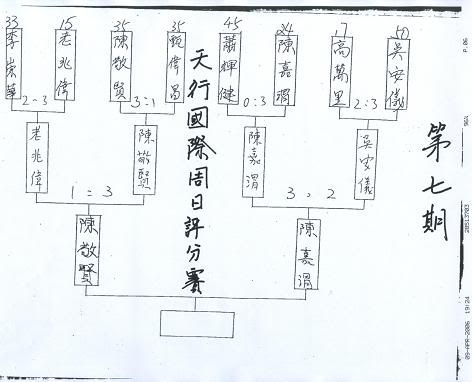 33 15 35 35 45 24 17 50
李崇華 老兆偉 陳敬賢 顏偉昌 蕭輝健 陳嘉渭 高萬里 吳安儀
2-3 3:1 0:3 2:3
老兆偉 陳敬賢 陳嘉渭 吳安儀
1=3 3>2
陳敬賢 陳嘉渭
天行國際周日評分賽
第七期